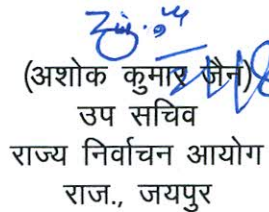 (अशोक कुमार जैन)
उप सचिव
राज्य निर्वाचन आयोग
राज., जयपुर